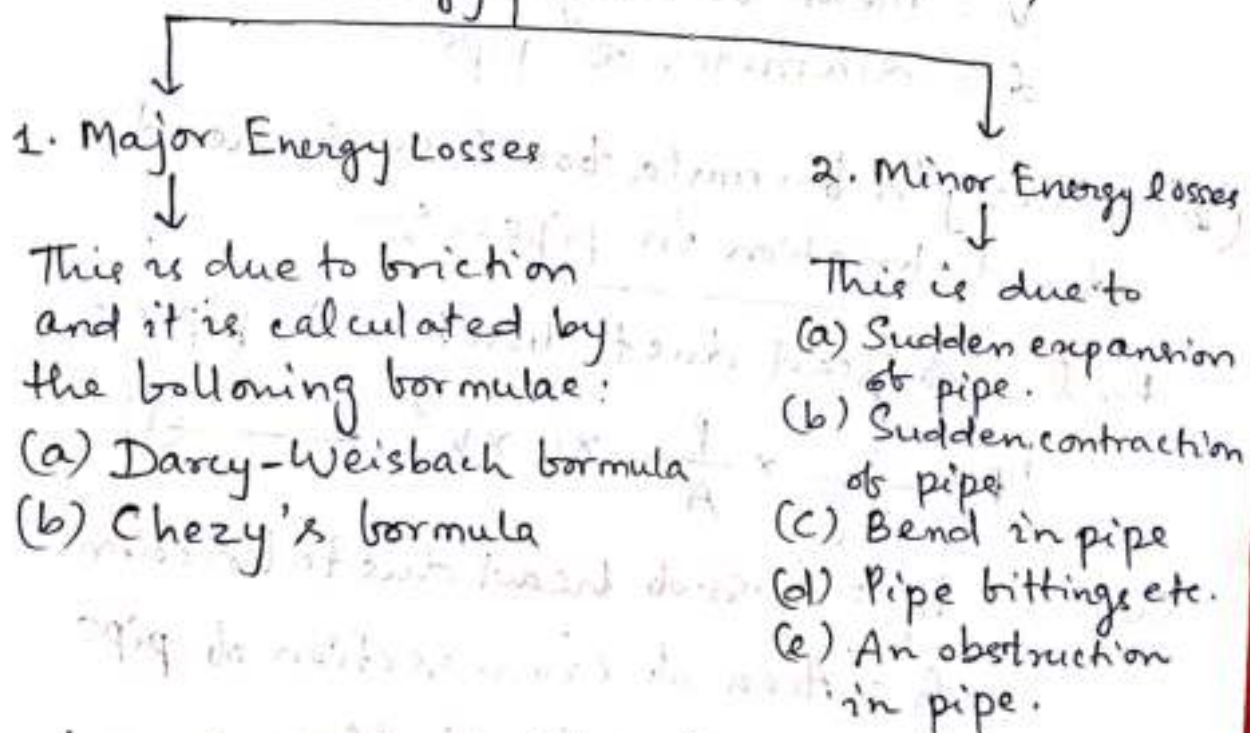 1. Major Energy Losses
This is due to friction
and it is calculated by
the following formulae:
(a) Darcy-Weisbach formula
(b) Chezy's formula
2. Minor Energy losses
This is due to
(a) Sudden expansion
of pipe.
(b) Sudden contraction
of pipe
(c) Bend in pipe
(d) Pipe fittings etc.
(e) An obstruction
in pipe.